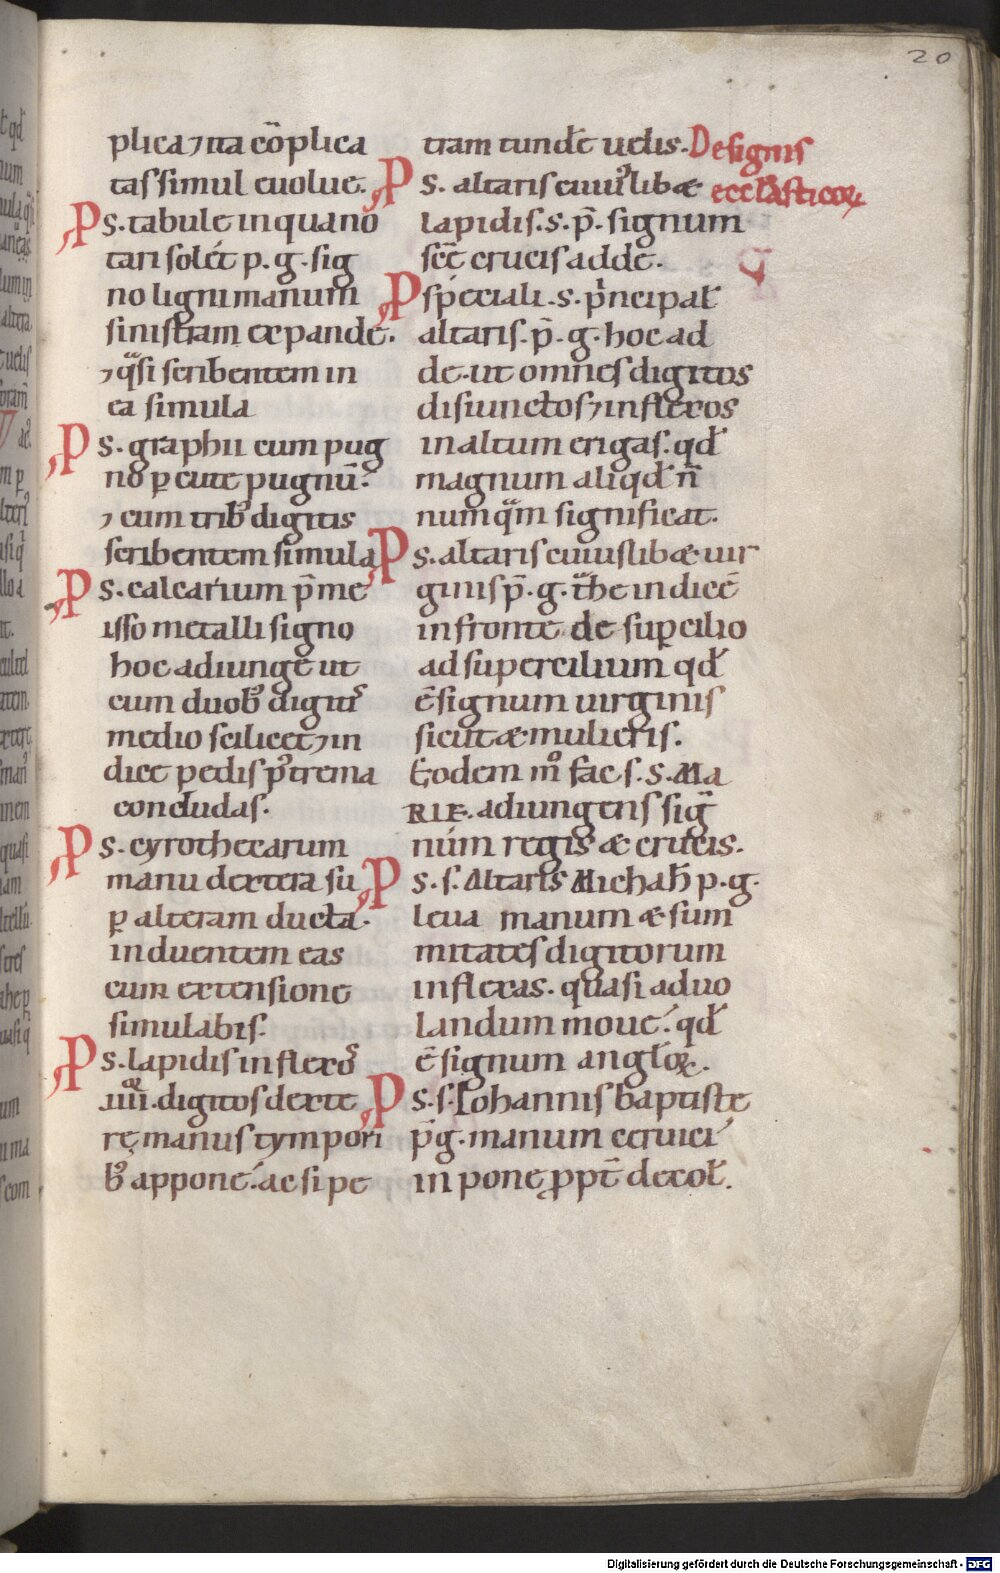 20
plica ⁊ ita cōplica
tas simul euolue.
P s. tabule in quā no
tari solét p. g. sig
no ligni manum
sinistram expande.
⁊ q̈si scribentem in
ea simula
P s. graphii cum pug
no ꝑcute pugnū.
⁊ cum trib᾽ digitis
scribentem simula
P s. calcarium p̄ me
isso metalli signo
hoc adiunge ut
cum duob᾽ digit᾽
medio scilicet ⁊ in
dice pedis p᾽trema
concludas.
P s. cyrothecarum
manu dextera su
ꝑ alteram ducta.
induentem eas
cum extensione
simulabis.
P s. lapidis inflexo᾽
.iiii. digitos dexte
rę manus tympori
b᾽ appone. ac si pe
tram tundēt uelis. De signis
ecclasticoꝝ
P s. altaris cuiu᾽libæ
lapidis. s. p̄. signum
scē crucis adde.
P speciali. s. p̍ncipał
altaris. p̄. g. hoc ad
de. ut omnes digitos
disiunctos ⁊ inflexos
in altum erigas. qđ
magnum aliqđ n̄
numq̈m significat.
P s. altaris cuiuslibæ uir
ginis p̄. g. t̊he indicē
in fronte de suꝑcilio
ad supercilium qđ
ē signum uirginis
sicut æ mulieris.
Eodem m° fac s. S. Ma
RIE. adiungens sig
num regis æ crucis.
P s. s. Altaris Michaħ p. g.
leua manum æ sum
mitates digitorum
inflexas. quasi aduo
landum moue. qđ
ē signum angłoꝝ.
P s. s. Iohannis baptiste
p̄ g. manum ceruici
inpone ꝓpt̄ decoł.
Digitalisierung gefördert durch die Deutsche Forschungsgemeinschaft - DFG